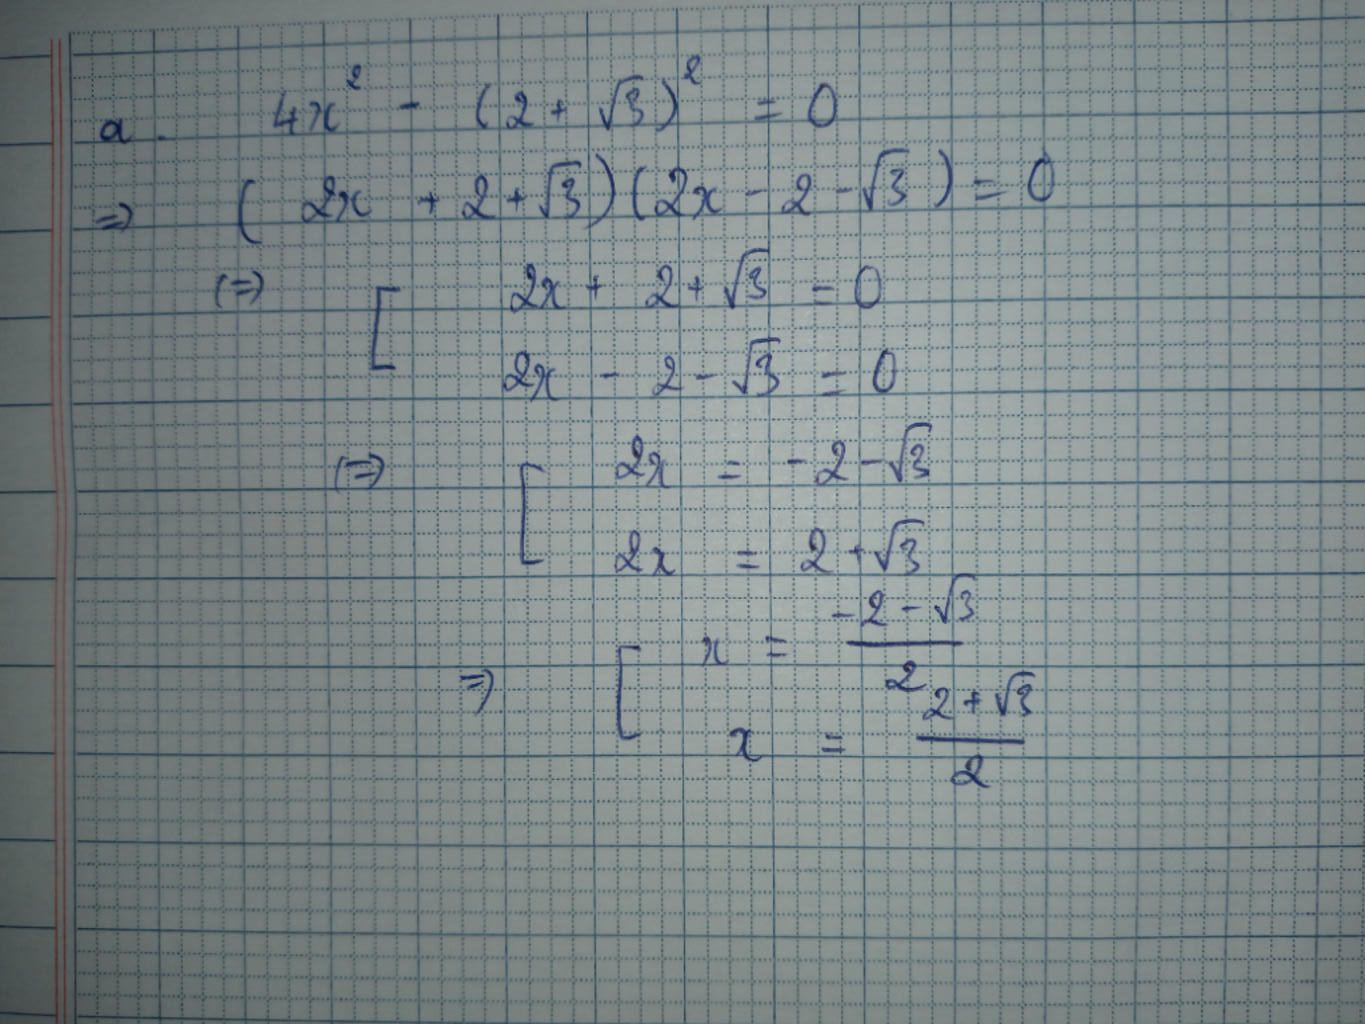 a. 4x² - (2 + √3)² = 0
=> (2x + 2 + √3)(2x - 2 - √3) = 0
(=> [ 2x + 2 + √3 = 0
2x - 2 - √3 = 0
(=> [ 2x = -2 - √3
2x = 2 + √3
=> [ x = (-2 - √3)/2
x = (2 + √3)/2